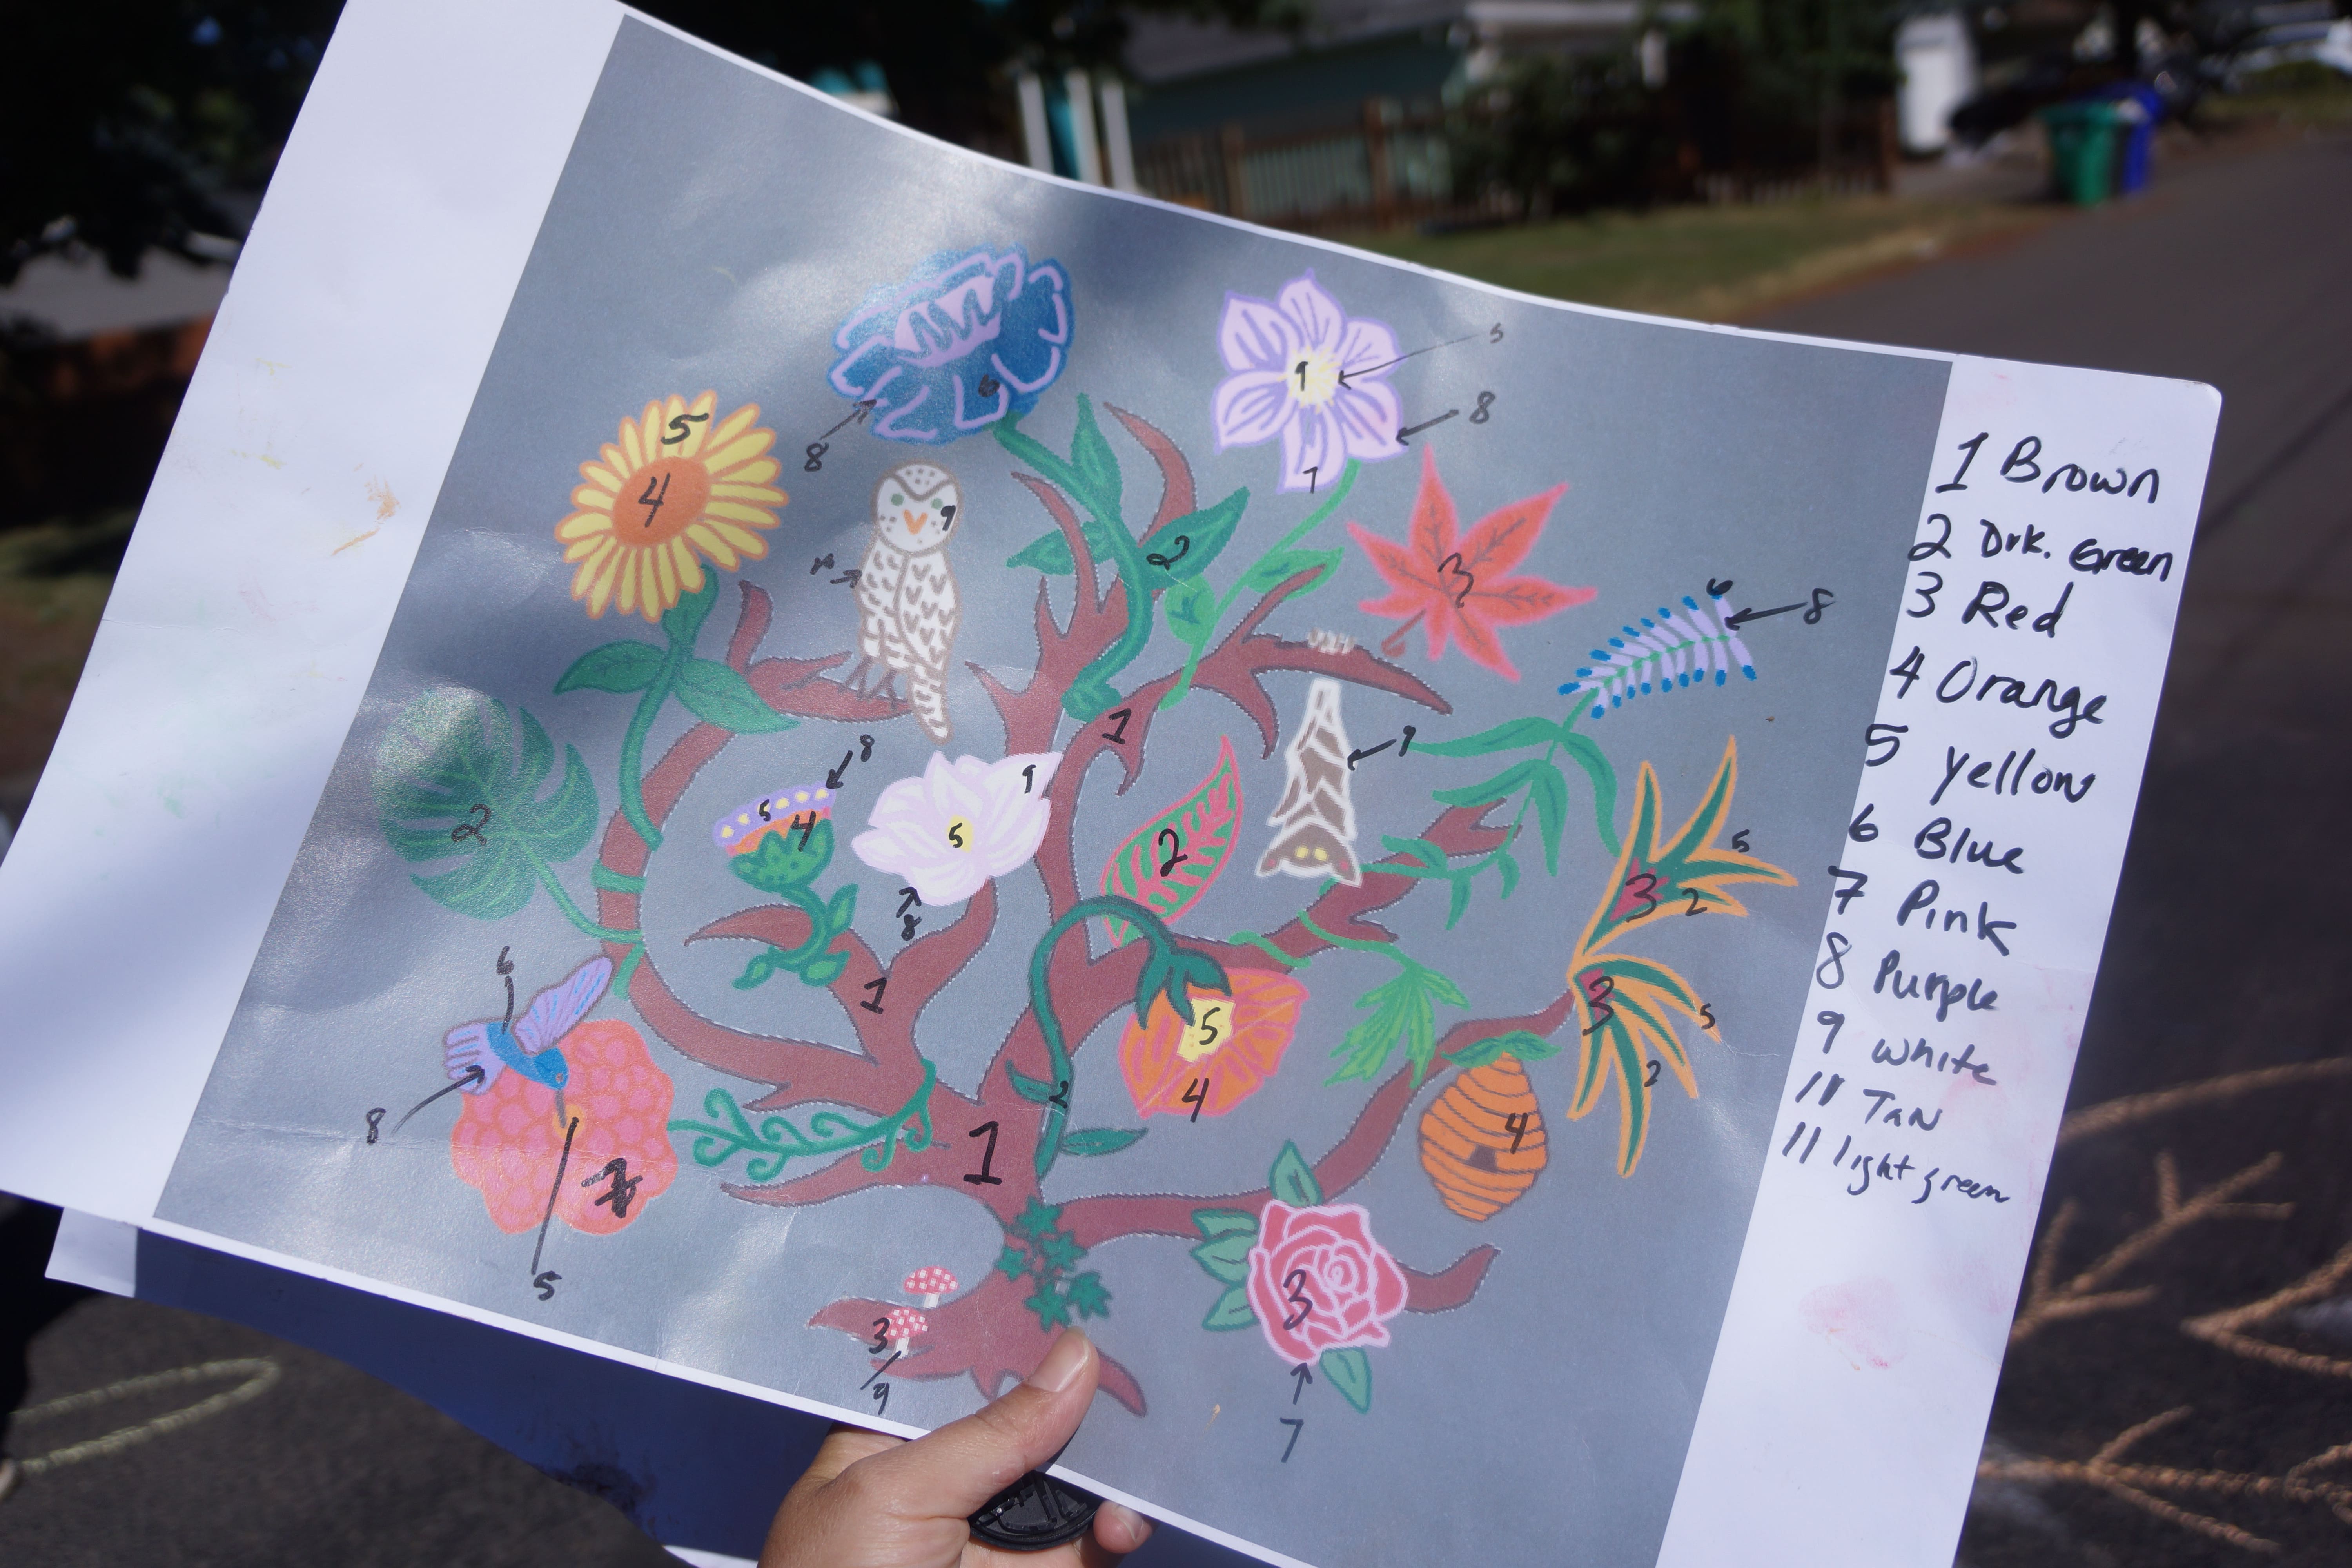 1 Brown
2 Drk. Green
3 Red
4 Orange
5 yellow
6 Blue
7 Pink
8 Purple
9 white
11 TAN
11 light green
5
8
6
8
9
7
5
4
9
8
2
3
6
8
1
9
8
5
4
9
5
8
2
2
5
3
2
3
5
2
1
6
8
7
5
5
4
2
4
1
3
9
3
7